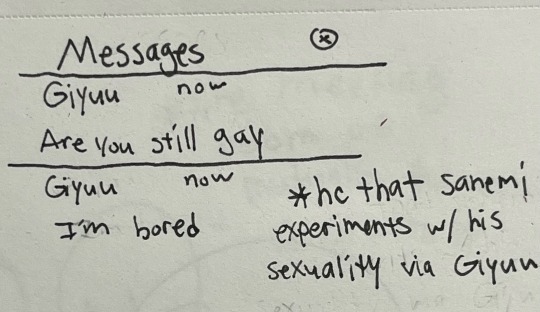 Messages
Giyuu now
Are you still gay
Giyuu now
I'm bored
*hc that sanemi
experiments w/ his
sexuality via Giyuu